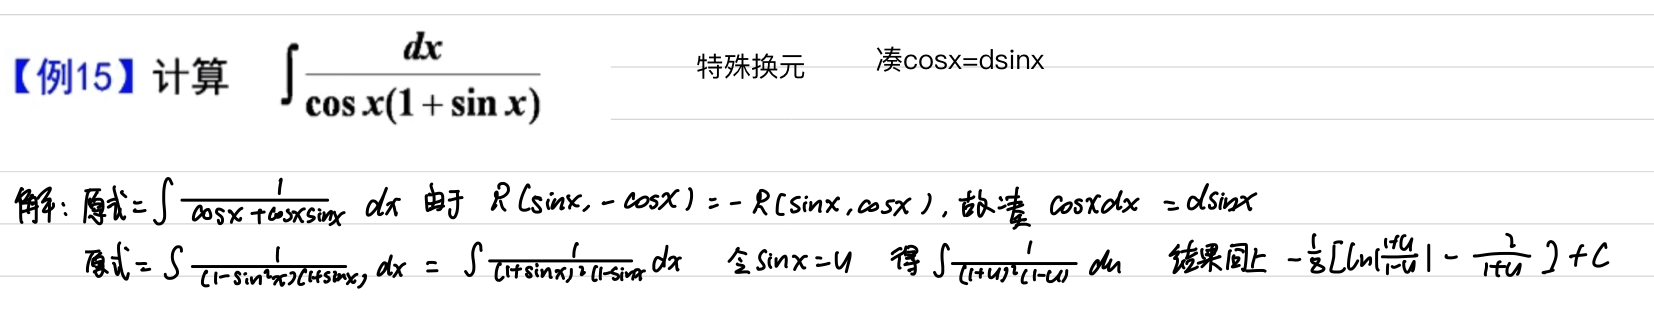 【例15】计算 ∫ dx / cos x(1 + sin x) 特殊换元 凑cosx=dsinx
解：原式 = ∫ 1 / cosx + cosxsinx dx 由于 R(sinx, -cosx) = -R(sinx, cosx), 故凑 cosxdx = dsinx
原式 = ∫ 1 / (1-sin²x)(1+sinx) dx = ∫ 1 / (1+sinx)²(1-sinx) dx 令 sinx = u 得 ∫ 1 / (1+u)²(1-u) du 结果同上 -1/8 [ln|1+u / 1-u| - 2 / 1+u] + C